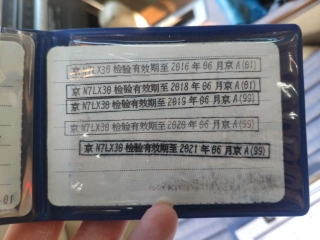 京 N7LX30 检验有效期至 2016 年 06 月京 A(01)
京 N7LX30 检验有效期至 2018 年 06 月京 A(01)
京 N7LX30 检验有效期至 2019 年 06 月京 A(99)
京 N7LX30 检验有效期至 2020 年 06 月京 A(99)
京 N7LX30 检验有效期至 2021 年 06 月京 A(99)
01